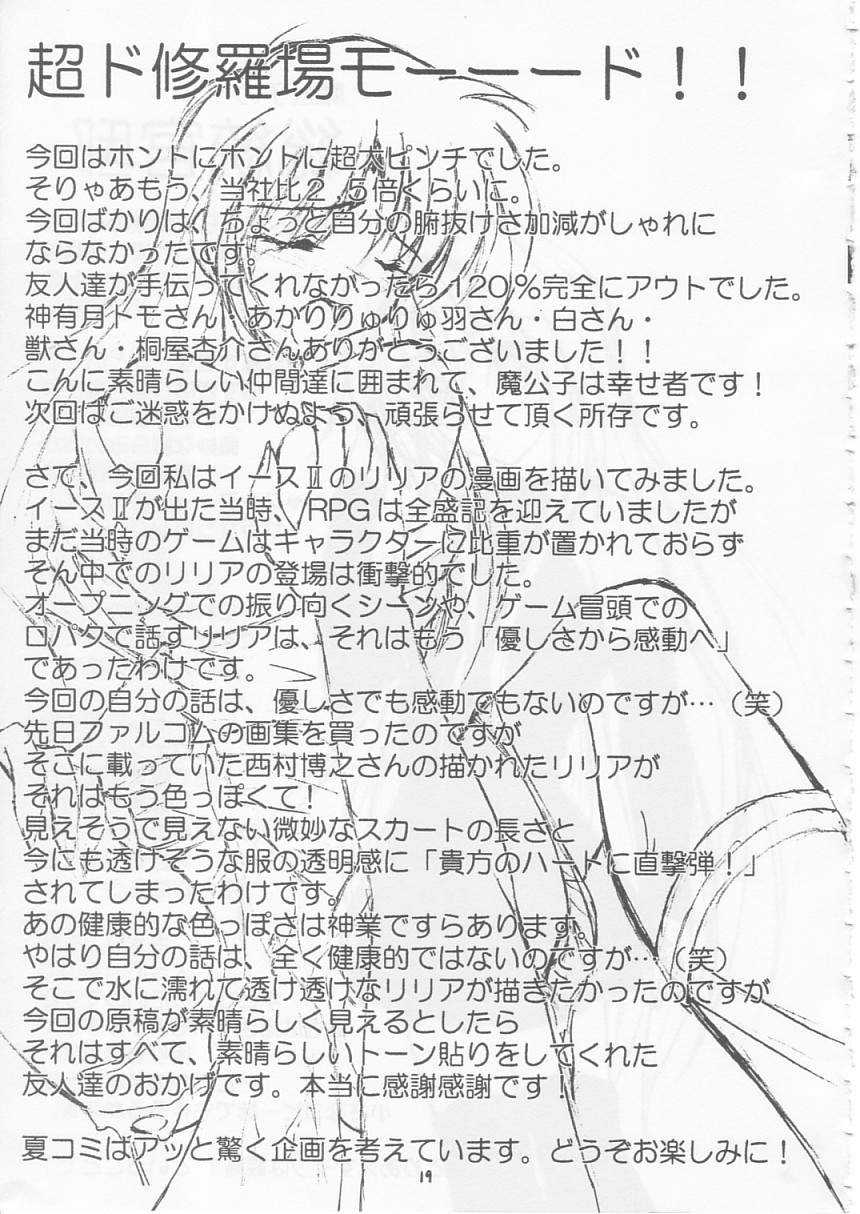 超ド修羅場モーーード！！
今回はホントにホントに超大ピンチでした。
そりゃあもう、当社比２.５倍くらいに。
今回ばかりは、ちょっと自分の腑抜けさ加減がしゃれに
ならなかったです。
友人達が手伝ってくれなかったら120％完全にアウトでした。
神有月トモさん・あかりりゅりゅ羽さん・白さん・
獣さん・桐屋杏介さんありがとうございました！！
こんに素晴らしい仲間達に囲まれて、魔公子は幸せ者です！
次回はご迷惑をかけぬよう、頑張らせて頂く所存です。
さて、今回私はイースⅡのリリアの漫画を描いてみました。
イースⅡが出た当時、RPGは全盛記を迎えていましたが
まだ当時のゲームはキャラクターに比重が置かれておらず
そん中でのリリアの登場は衝撃的でした。
オープニングでの振り向くシーンや、ゲーム冒頭での
口パクで話すリリアは、それはもう「優しさから感動へ」
であったわけです。
今回の自分の話は、優しさでも感動でもないのですが…（笑）
先日ファルコムの画集を買ったのですが
そこに載っていた西村博之さんの描かれたリリアが
それはもう色っぽくて！
見えそうで見えない微妙なスカートの長さと
今にも透けそうな服の透明感に「貴方のハートに直撃弾！」
されてしまったわけです。
あの健康的な色っぽさは神業ですらあります。
やはり自分の話は、全く健康的ではないのですが…（笑）
そこで水に濡れて透け透けなリリアが描きたかったのですが
今回の原稿が素晴らしく見えるとしたら
それはすべて、素晴らしいトーン貼りをしてくれた
友人達のおかげです。本当に感謝感謝です！
夏コミはアッと驚く企画を考えています。どうぞお楽しみに！
19